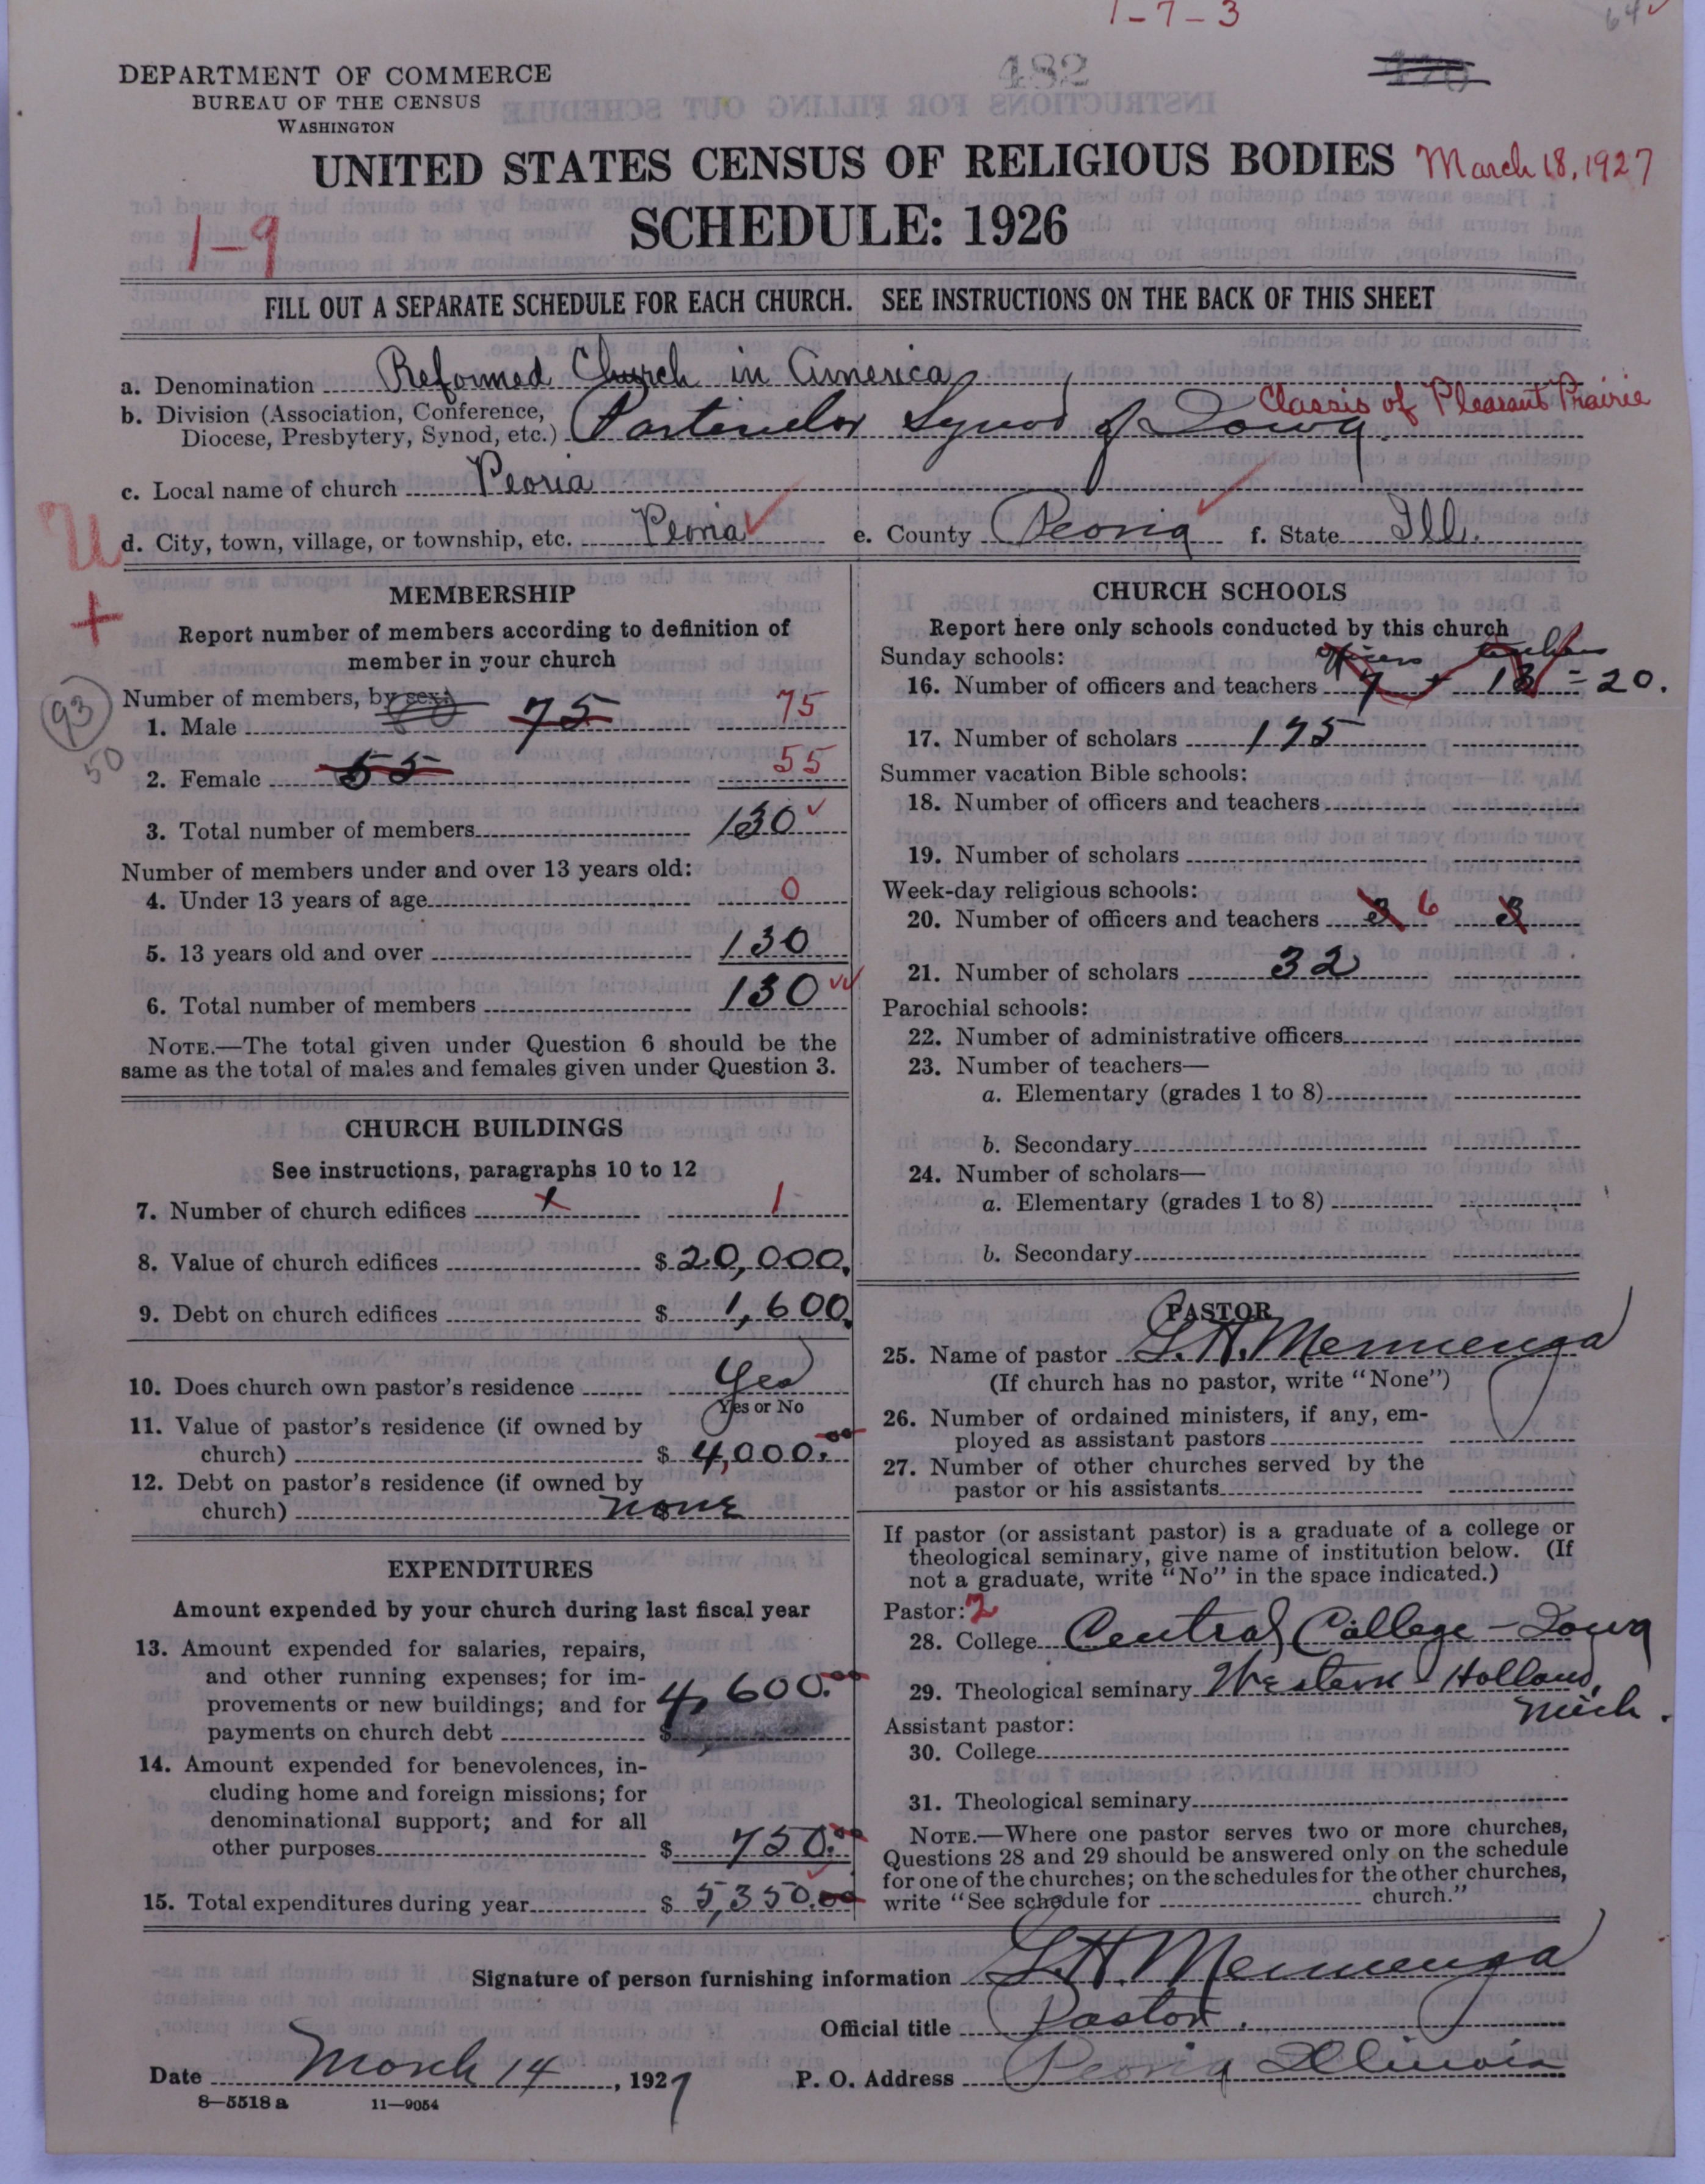 1-7-3
64
DEPARTMENT OF COMMERCE
BUREAU OF THE CENSUS
WASHINGTON
482
170
UNITED STATES CENSUS OF RELIGIOUS BODIES March 18, 1927
1-9
SCHEDULE: 1926
FILL OUT A SEPARATE SCHEDULE FOR EACH CHURCH. SEE INSTRUCTIONS ON THE BACK OF THIS SHEET
a. Denomination Reformed Church in America
b. Division (Association, Conference, Diocese, Presbytery, Synod, etc.) Particular Synod of Iowa. Classis of Pleasant Prairie
c. Local name of church Peoria
U
d. City, town, village, or township, etc. Peoria e. County Peoria f. State Ill.
+
MEMBERSHIP
Report number of members according to definition of
member in your church
Number of members, by sex:
93
50
1. Male 75 75
2. Female 55 55
3. Total number of members 130
Number of members under and over 13 years old:
4. Under 13 years of age 0
5. 13 years old and over 130
6. Total number of members 130
NOTE.—The total given under Question 6 should be the
same as the total of males and females given under Question 3.
CHURCH BUILDINGS
See instructions, paragraphs 10 to 12
7. Number of church edifices x 1
8. Value of church edifices $ 20,000.
9. Debt on church edifices $ 1,600.
10. Does church own pastor's residence Yes
Yes or No
11. Value of pastor's residence (if owned by
church) $ 4,000.00
12. Debt on pastor's residence (if owned by
church) none
EXPENDITURES
Amount expended by your church during last fiscal year
13. Amount expended for salaries, repairs,
and other running expenses; for im-
provements or new buildings; and for
payments on church debt $ 4,600.00
14. Amount expended for benevolences, in-
cluding home and foreign missions; for
denominational support; and for all
other purposes $ 750.00
15. Total expenditures during year $ 5,350.00
CHURCH SCHOOLS
Report here only schools conducted by this church
Sunday schools:
officers teachers
16. Number of officers and teachers 7 + 13 = 20.
17. Number of scholars 175
Summer vacation Bible schools:
18. Number of officers and teachers
19. Number of scholars
Week-day religious schools:
20. Number of officers and teachers 3 6 3
21. Number of scholars 32
Parochial schools:
22. Number of administrative officers
23. Number of teachers—
a. Elementary (grades 1 to 8)
b. Secondary
24. Number of scholars—
a. Elementary (grades 1 to 8)
b. Secondary
PASTOR
25. Name of pastor L. H. Mennenga
(If church has no pastor, write "None")
26. Number of ordained ministers, if any, em-
ployed as assistant pastors
27. Number of other churches served by the
pastor or his assistants
If pastor (or assistant pastor) is a graduate of a college or
theological seminary, give name of institution below. (If
not a graduate, write "No" in the space indicated.)
Pastor: 2
28. College Central College - Iowa
29. Theological seminary Western Holland,
Mich.
Assistant pastor:
30. College
31. Theological seminary
NOTE.—Where one pastor serves two or more churches,
Questions 28 and 29 should be answered only on the schedule
for one of the churches; on the schedules for the other churches,
write "See schedule for church."
Signature of person furnishing information L. H. Mennenga
Official title Pastor.
Date March 14, 1927 P. O. Address Peoria Illinois
8—5518 a 11—9054